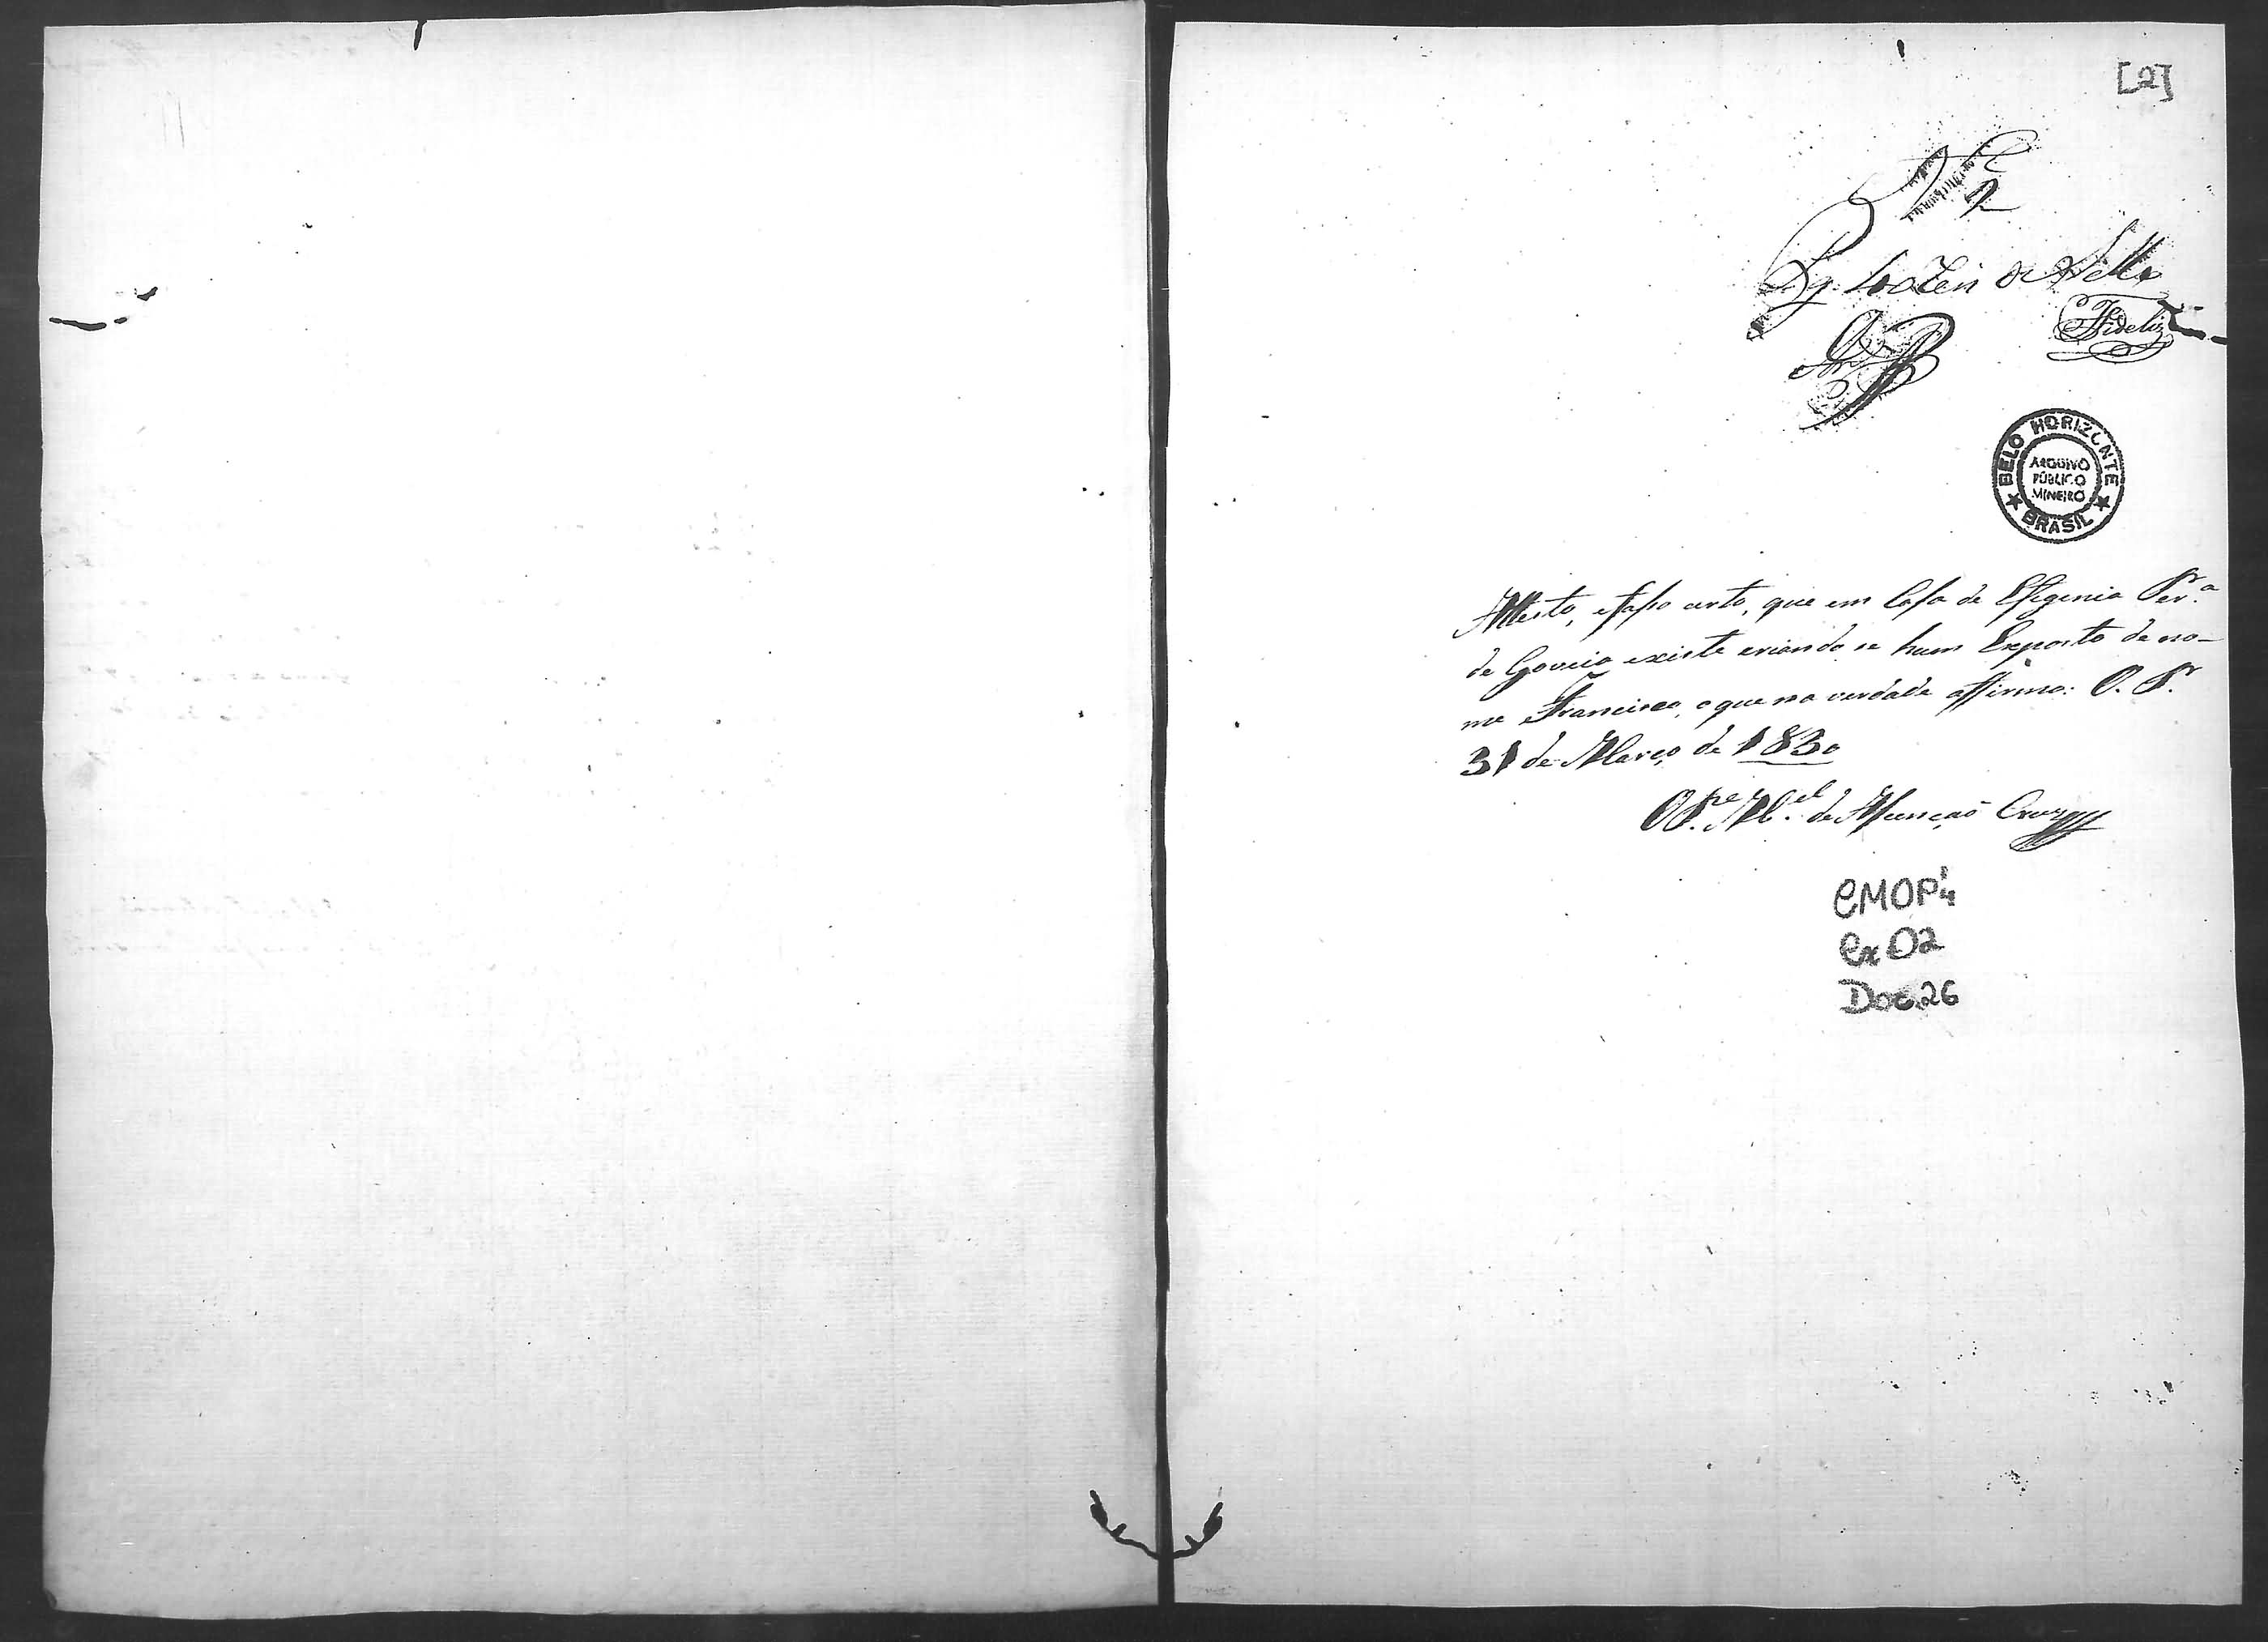 [2]
N 2
Pg. de Sello
Fideliz
BELO HORIZONTE
ARQUIVO
PÚBLICO
MINEIRO
BRASIL
Attesto, e faço certo, que em Casa de Efigenia Per.ª
de Gouveia existe criando se hum Exposto de no-
me Francisco, o que na verdade affirmo: O. P.
31 de Março de 1830
O P.e M.el de Assunção Cruz
CMOP
Cx 02
Doc. 26